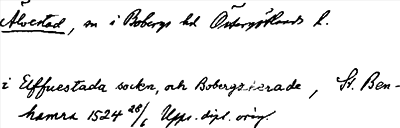 Älvestad, sn i Bobergs hd Östergötlands l.
i Elffuestada socken, och Bobergs herade, St. Ben-
hamra 1524 28/6 Upps. dipl. orig.